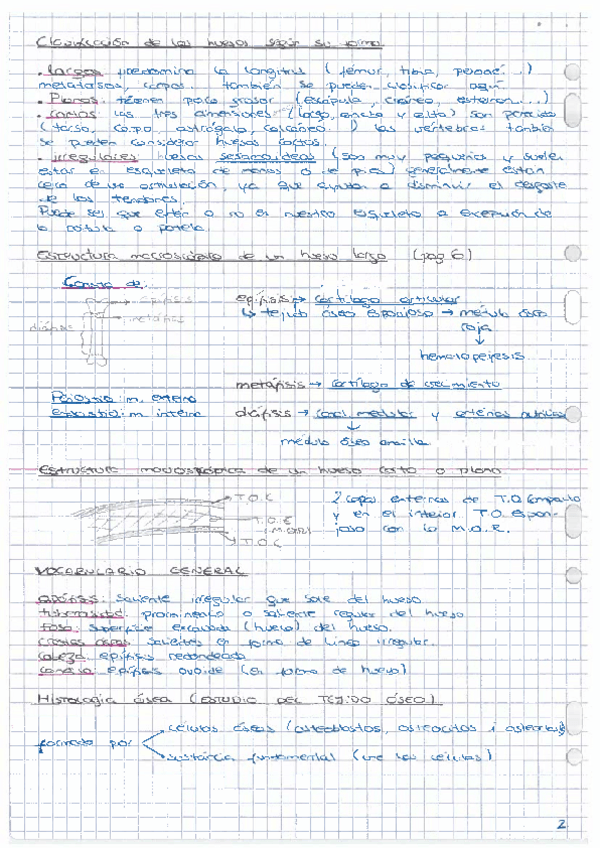 Clasificación de los huesos según su forma
. Largos: predomina la longitud (fémur, tibia, peroné...)
metatarsos, carpos. también se pueden clasificar aquí.
. Planos: tienen poco grosor (escápula, cráneo, esternón...)
. Cortos: las tres dimensiones (largo, ancho y alto) son parecidas
(tarso, carpo, astrágalo, calcáneo) las vértebras también
se pueden considerar huesos cortos.
. irregulares: huesos sesamoideos (son muy pequeños y suelen
estar en esqueleto de manos o de pies) generalmente están
cerca de una articulación, ya que ayudan a disminuir el desgaste
de los tendones.
Puede ser que estén o no en nuestro esqueleto a excepción de
la rótula o patela.
Estructura macroscópica de un hueso largo (pag 6)
Consta de:
epífisis
metáfisis
diáfisis
epífisis → cartílago articular
↳ tejido óseo esponjoso → médula ósea
roja
↓
hematopoyesis
metáfisis → cartílago de crecimiento
Periostio: m. externa
endostio: m. interna
diáfisis → canal medular y arterias nutricias
↓
médula ósea amarilla
Estructura macroscópica de un hueso corto o plano
T.O.C
T.O.E
(M.O.R)
T.O.C
2 capas externas de T.O Compacto
y en el interior T.O Espon-
joso con la M.O.R.
VOCABULARIO GENERAL
apófisis: saliente irregular que sale del hueso
tuberosidad: prominencia o saliente regular del hueso
fosa: superficie excavada (hueco) del hueso.
crestas óseas: salientes en forma de línea irregular.
cabeza: epífisis redondeada
cóndilo: epífisis ovoide (en forma de huevo)
Histología ósea (ESTUDIO DEL TEJIDO ÓSEO)
células óseas (osteoblastos, osteocitos i osteoclastos)
formado por
sustancia fundamental (une las células)
2